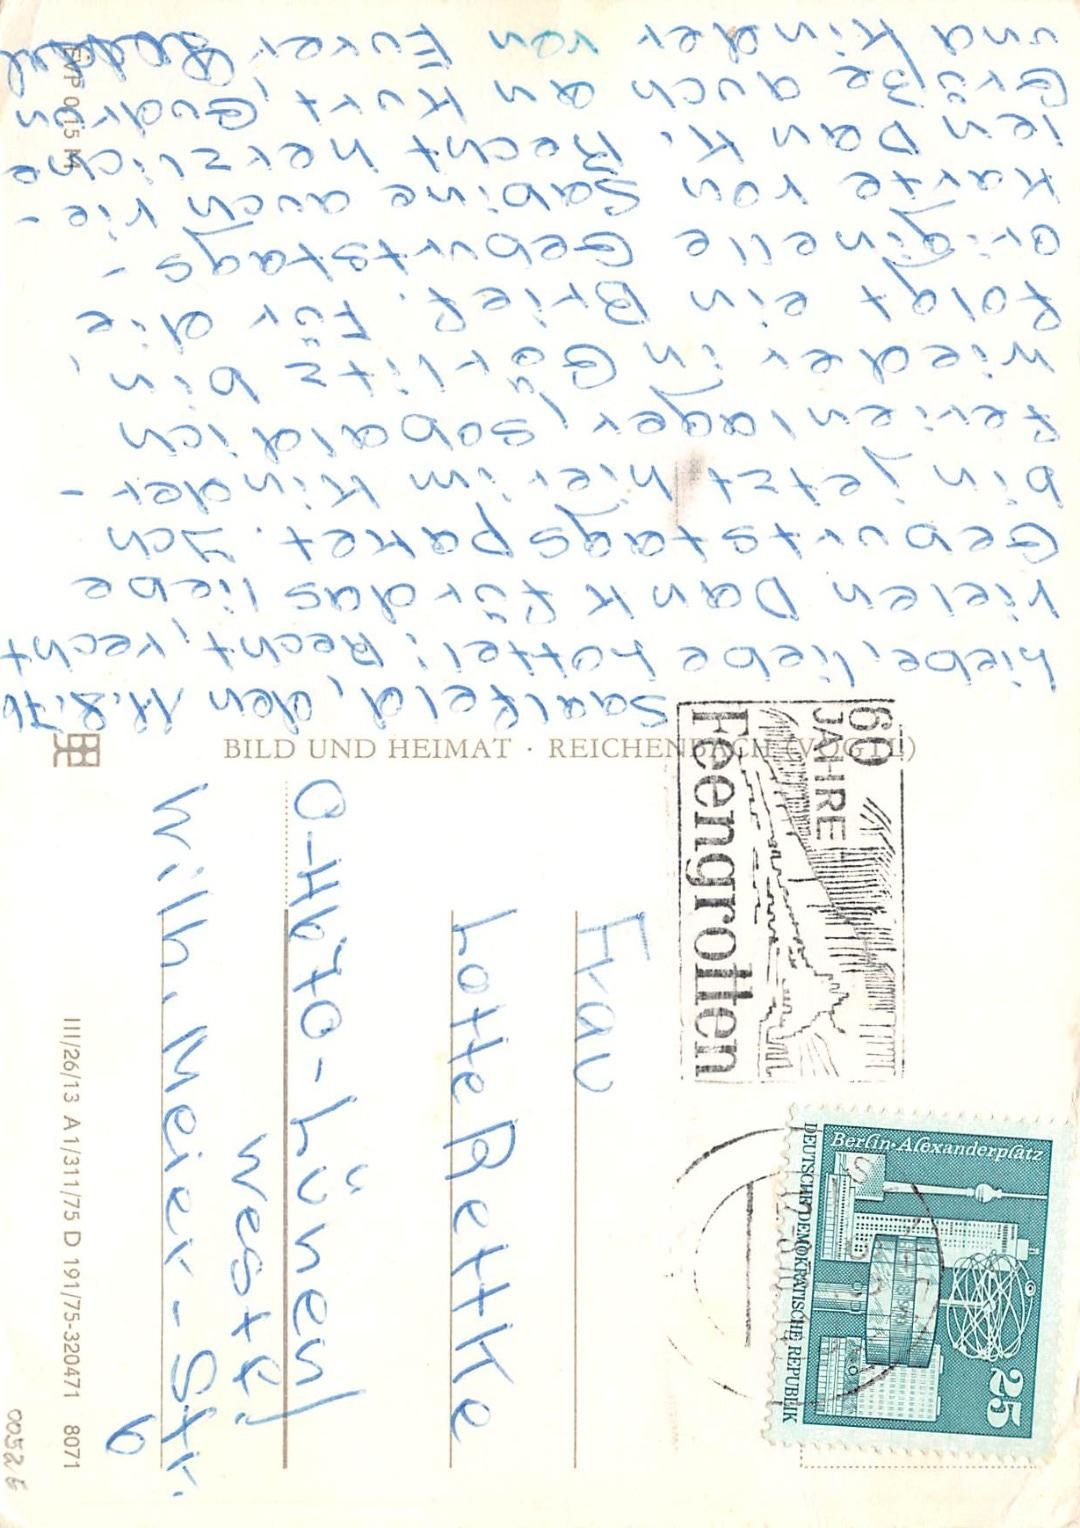 Saalfeld, den 11.8.76
Liebe, liebe Lottel! Recht, recht
vielen Dank für das liebe
Geburtstagspaket. Ich
bin jetzt hier im Kinder-
ferienlager, sobald ich
wieder in Görlitz bin,
folgt ein Brief. Für die
originelle Geburtstags-
karte von Sabine auch vie-
len Dan k. Recht herzliche
Grüße auch an Kurt, Gudrun
und Kinder von Eurer
EVP 0,15 M
BILD UND HEIMAT · REICHENBACH (VOGTL)
60
JAHRE
Feengrotten
Berlin·Alexanderplatz
25
DEUTSCHE DEMOKRATISCHE REPUBLIK
Frau
Lotte Rettke
O-4670-Lünen/
Westf!
Wilh. Meier-Str.
6
III/26/13 A 1/311/75 D 191/75-320471 8071